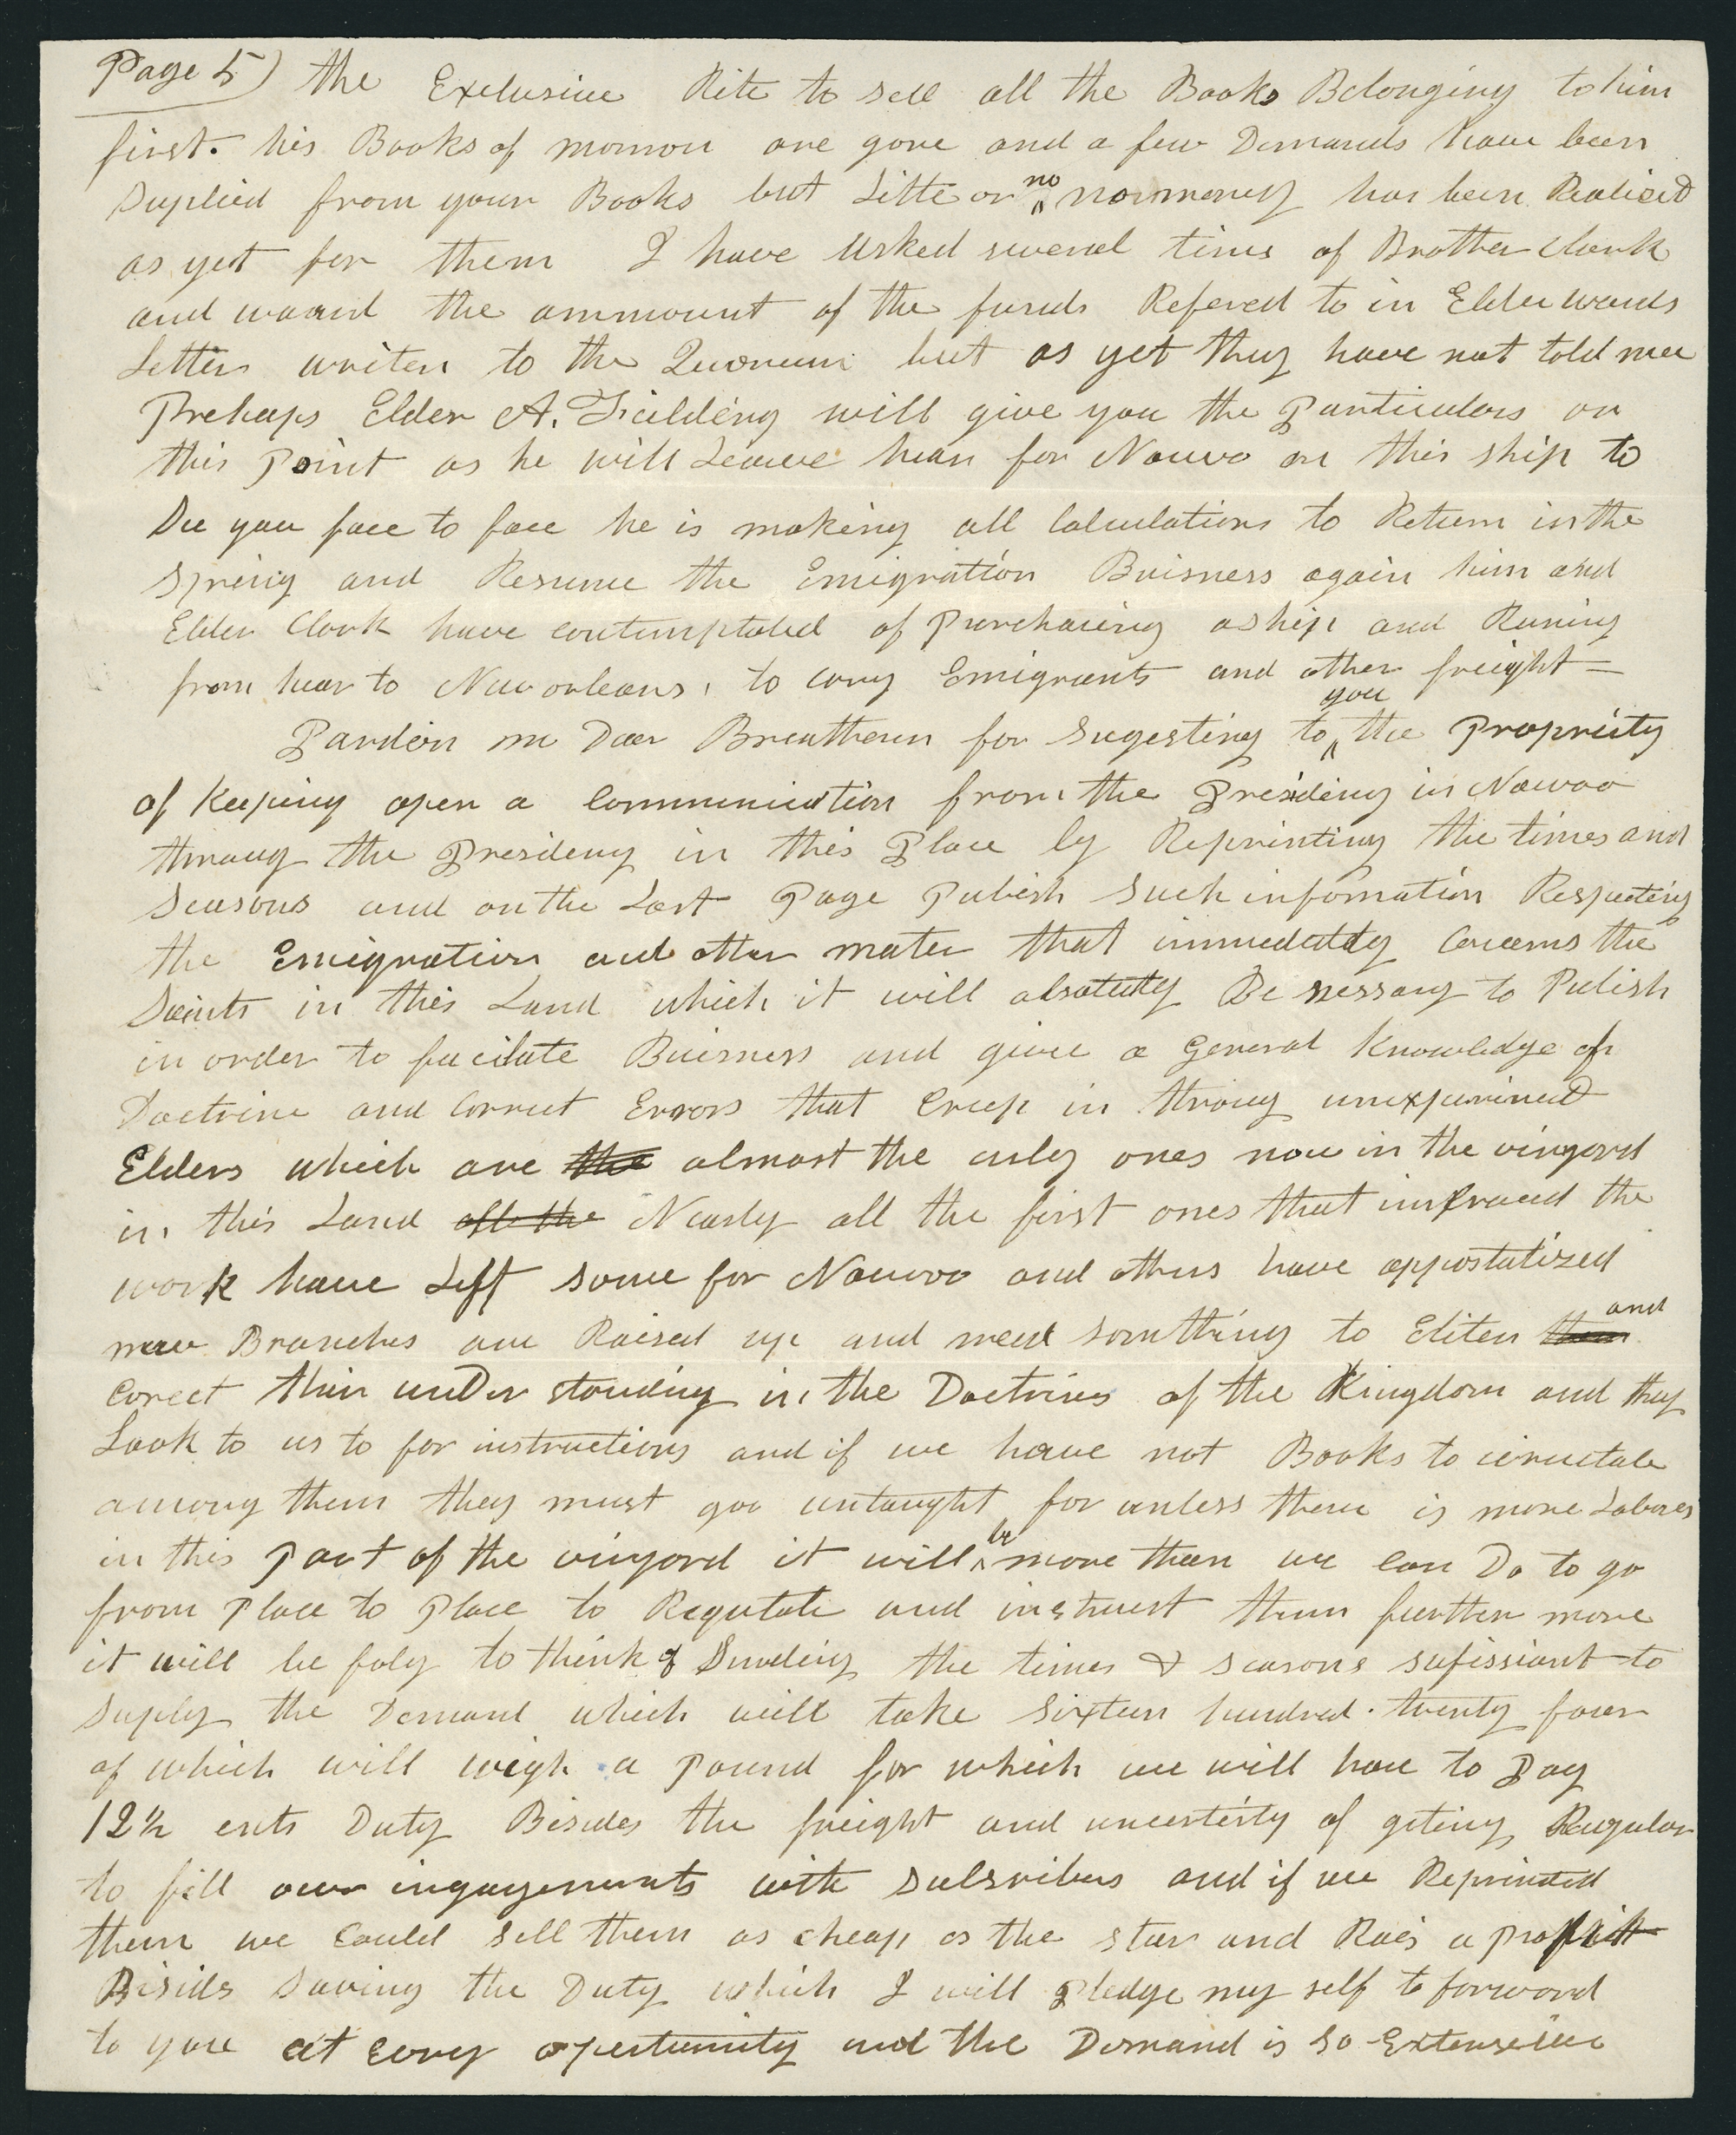 Page 5) the Exclusive Rite to sell all the Books Belonging to him
first. his Books of mormon are gone and a few Demands have been
Suplied from your Books but Litte or no money has been Realised
as yet for them I have Asked several times of Brother Clark
and waard the ammount of the funds Refered to in Elder wards
Letter writen to the Quorum but as yet they have not told mee
Prehaps Elder A. Fielding will give you the Particulars on
this Point as he will Leave hear for Nauvo on this ship to
See you face to face he is making all Calculations to Return in the
Spring and Resume the Emigration Buisness again him and
Elder Clark have contemplated of Purchasing a ship and Runing
from hear to Neworleans, to cary Emigrants and other freight=
Pardon me Dear Breutheren for Sugesting to you the Propriety
of Keeping open a Communication from the Presideny in Nauvoo
throug the Presideny in this Place by Reprinting the times and
Seasons and on the Last Page Publish Such infomation Respecting
the Emigration and other mater that immediatly Concerns the
Saints in this Land which it will absolutly Be nessary to Pulish
in order to facilate Buisness and give a General Knowledge of
Doctrine and Correct Errors that Creep in throug unexperinced
Elders which are the almost the only ones now in the vinyard
in this Land all the Nearly all the first ones that imbraced the
work have Left some for Nauvoo and others have appostatized
new Branches are Raised up and need somthing to Eliten them and
Corect thier under standing in the Doctrines of the Kingdom and they
Look to us to for instructions and if we have not Books to circulate
among them they must goo untaught for unless there is more Labores
in this Part of the vinyard it will be more then we Can Do to go
from Place to Place to Regulate and instruct them further more
it will be foly to think of Sending the times & seasons sufissiant to
Suply the Demand which will take Sixteen hundred. twenty four
of which will wigh a Pound for which we will have to Pay
12½ cnts Duty Besides the freight and uncertinty of geting Regular
to fill our ingagements with Subsribers and if we Reprinted
them we Could sell them as cheap as the star and Rais a profit
Besides Saving the Duty which I will Pledge my self to forword
to you at every opertunity and the Demand is so Extensive